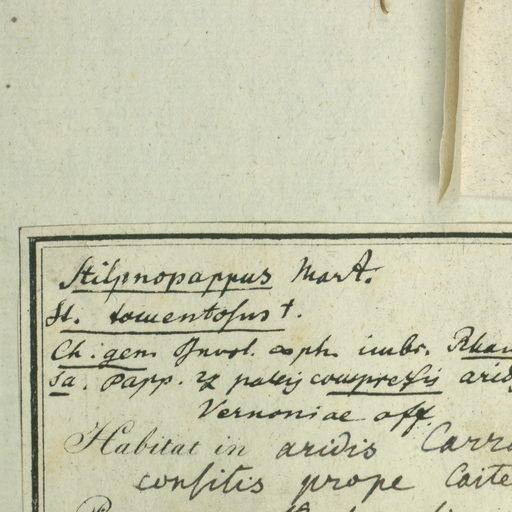 Stilpnopappus Mart.
St. tomentosus †.
Ch. gen. Invol. ∞ph. imbr.
Papp. paleis compressis
Vernoniae aff.
Habitat in aridis
consitis prope